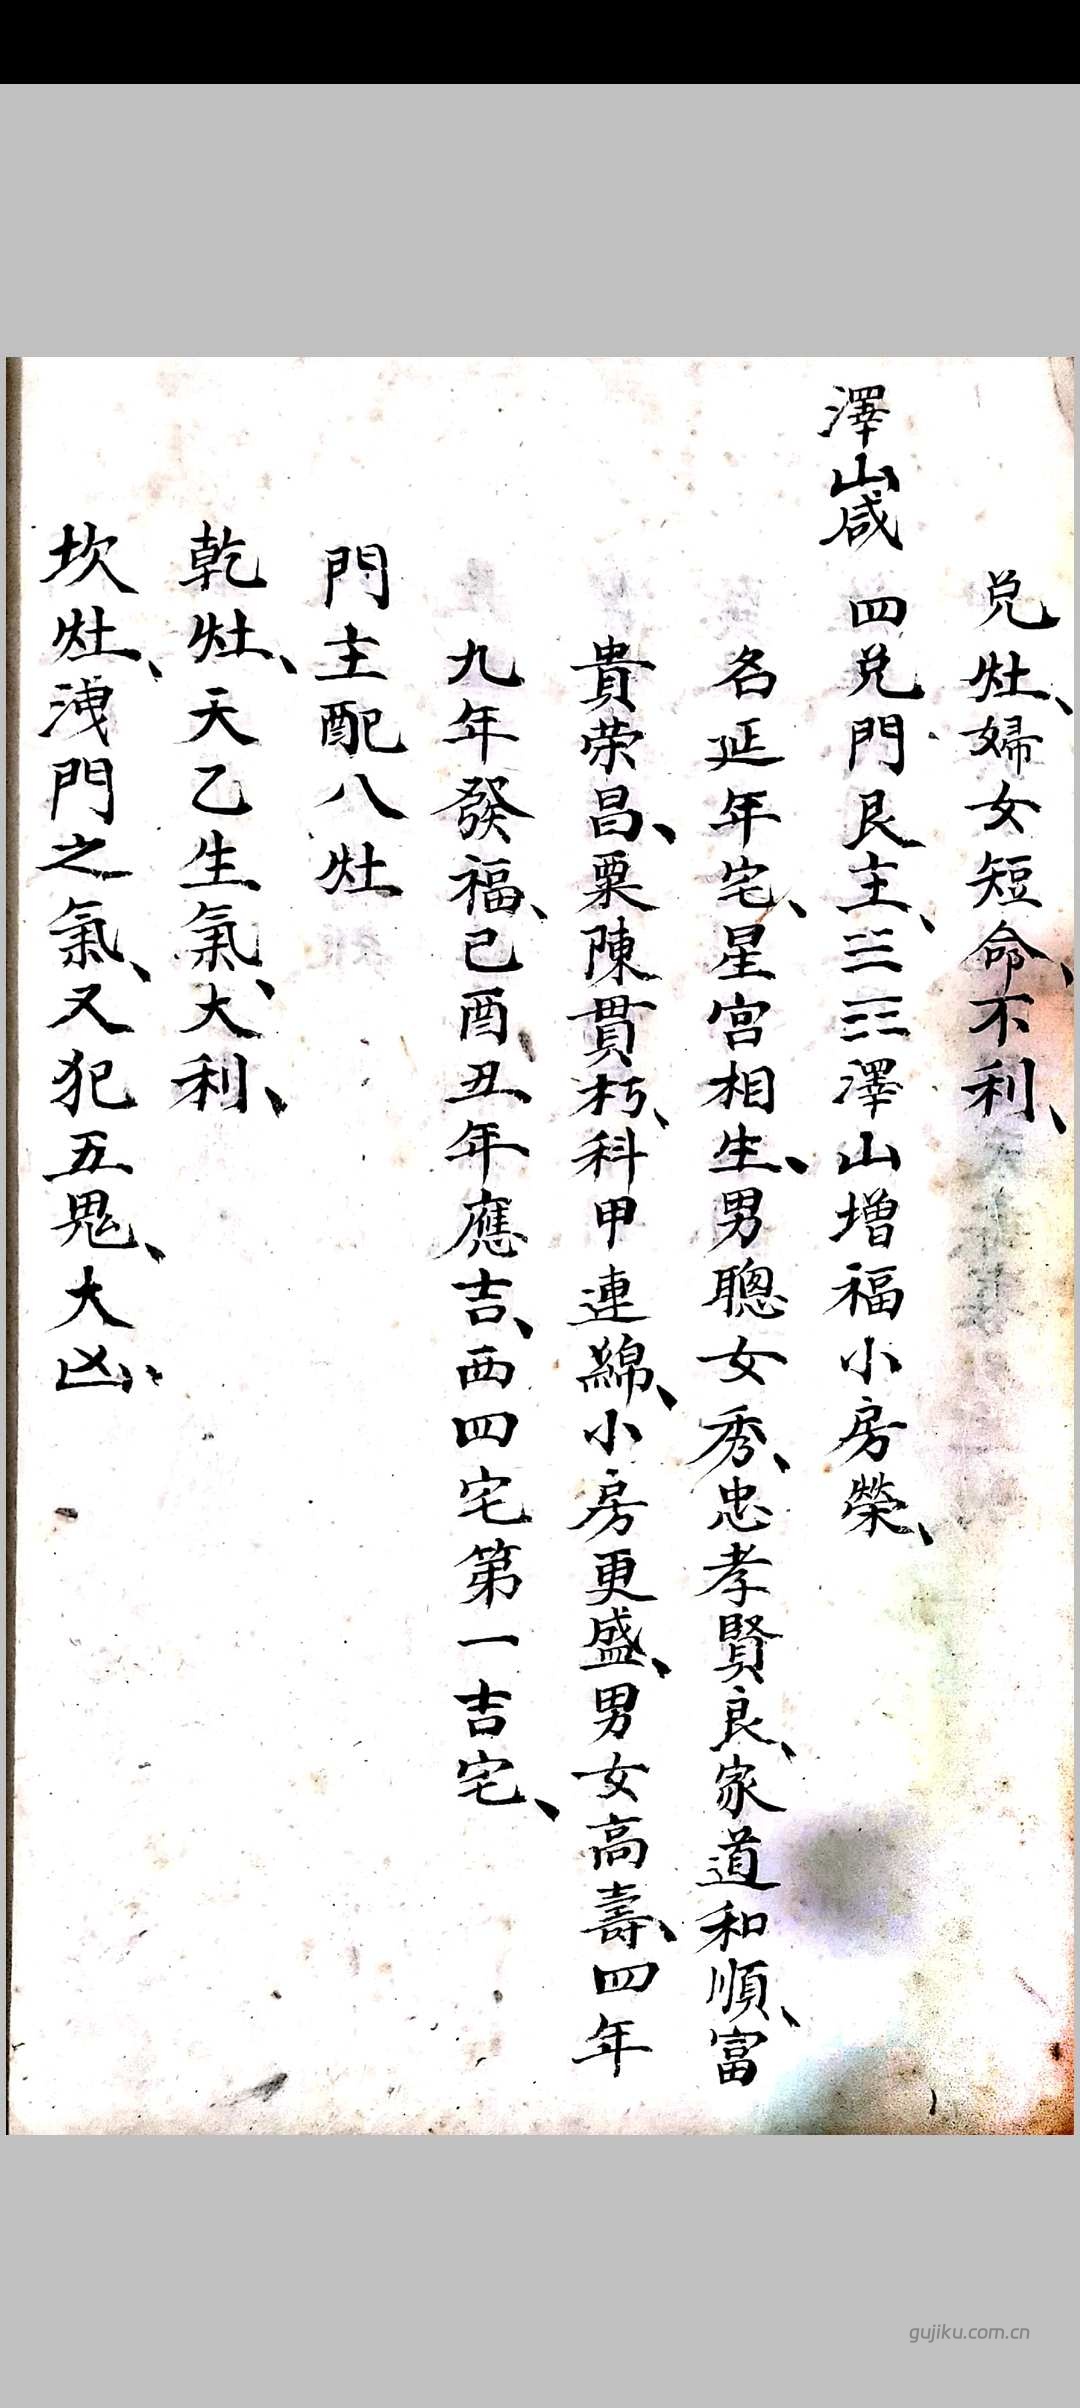 兑灶、婦女短命、不利、
澤山咸
四兑門艮主、☱☶澤山增福小房榮、
名延年宅、星宮相生、男聰女秀、忠孝賢良、家道和順、富
貴荣昌、粟陳貫朽、科甲連綿、小房更盛、男女高壽、四年
九年發福、已酉丑年應吉、西四宅第一吉宅、
門主配八灶
乾灶、天乙生氣、大利、
坎灶、洩門之氣、又犯五鬼、大凶、
gujiku.com.cn